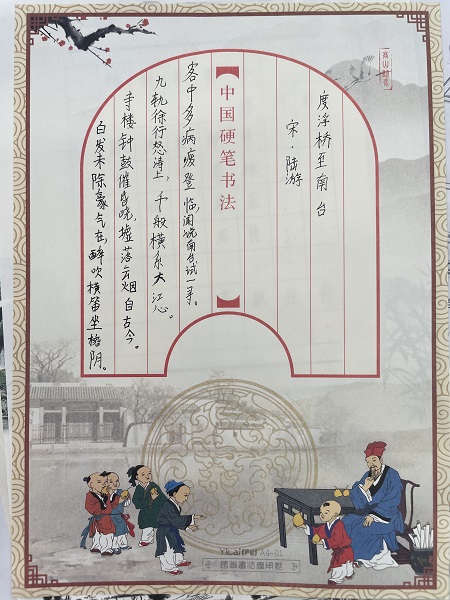 度浮桥至南台
宋·陆游
【中国硬笔书法】
客中多病废登临,闻说南台试一寻。
九轨徐行怒涛上,千艘横系大江心。
寺楼钟鼓催昏晓,墟落云烟自古今。
白发未除豪气在,醉吹横笛坐榕阴。
A4-01